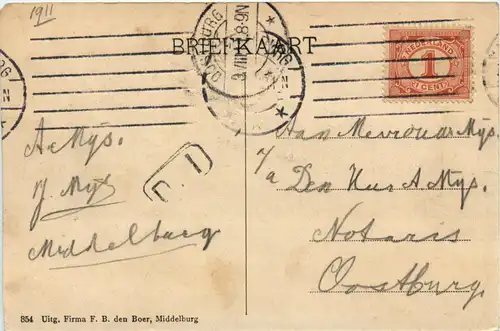 1911
BRIEFKAART
NEDERLAND
1
CENT
8-9N
A Mijs.
J. Mijs
Middelburg
Aan Mevrouw Mijs.
p/a Den Heer A Mijs.
Notaris
Oostburg.
854 Uitg. Firma F. B. den Boer, Middelburg